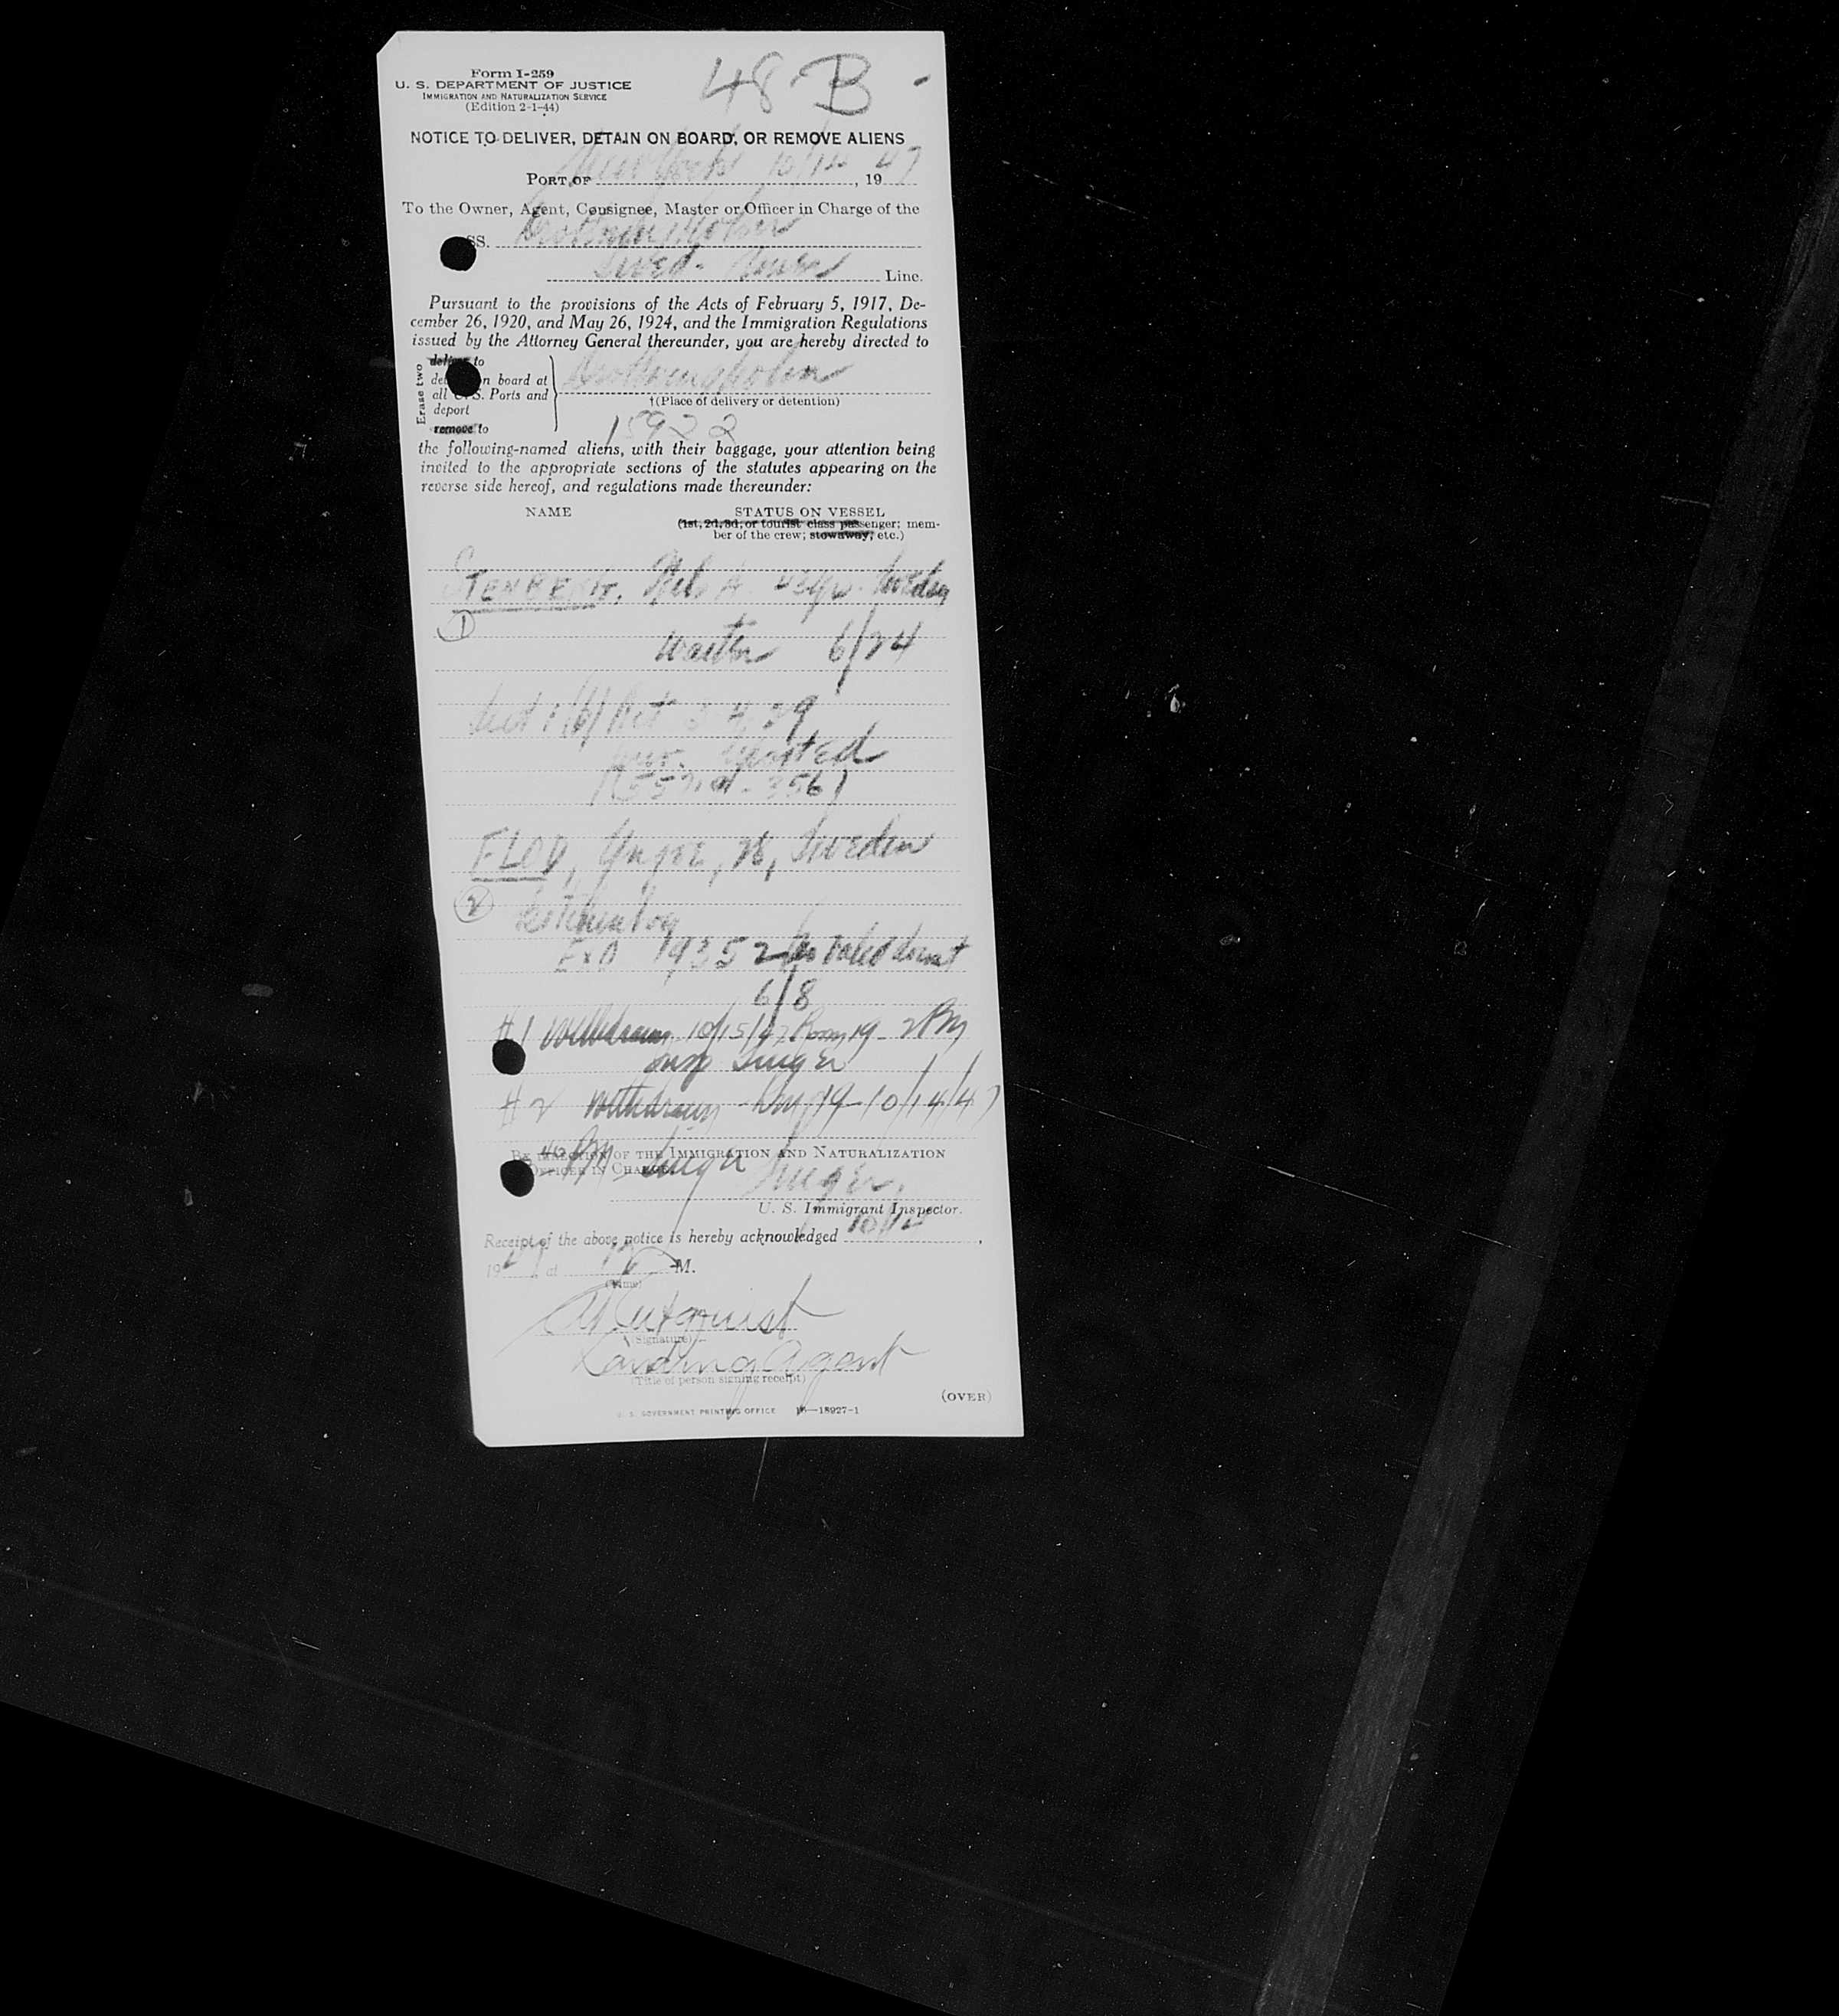 Form I-259
48-B
U. S. DEPARTMENT OF JUSTICE
IMMIGRATION AND NATURALIZATION SERVICE
(Edition 2-1-44)
NOTICE TO DELIVER, DETAIN ON BOARD, OR REMOVE ALIENS
PORT OF New York 10/14, 19 47
To the Owner, Agent, Consignee, Master or Officer in Charge of the
SS. Drottningholm
Swed- Amer Line.
Pursuant to the provisions of the Acts of February 5, 1917, De-
cember 26, 1920, and May 26, 1924, and the Immigration Regulations
issued by the Attorney General thereunder, you are hereby directed to
Erase two
deliver to
on board at
all U. S. Ports and
deport
remove to
Drottningholm
†(Place of delivery or detention)
15922
the following-named aliens, with their baggage, your attention being
invited to the appropriate sections of the statutes appearing on the
reverse side hereof, and regulations made thereunder:
NAME STATUS ON VESSEL
(1st, 2d, 3d, or tourist class passenger; mem-
ber of the crew; stowaway, etc.)
STENBERG, Nils A. Sweden
1
waiter 6/24
Act 3 4 29
1(b)
356)
FLOD, Yngve, 28, Sweden
2
kitchen boy
19352 no valid
6/8
#1 withdrawn 10/15/47 Room 19 - 2 PM
insp Singer
#2 withdrawn 19-10/14/47
PM Singer
BY DIRECTION OF THE IMMIGRATION AND NATURALIZATION
OFFICER IN CHARGE
Singer
U. S. Immigrant Inspector.
Receipt of the above notice is hereby acknowledged 10/14,
1947, at M.
(Time)
(Signature)
Landing Agent
(Title of person signing receipt)
(OVER)
U. S. GOVERNMENT PRINTING OFFICE 16—18927-1